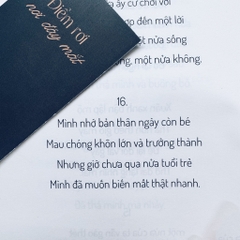 Điểm rơi
nơi đáy mắt
ấy cứ chơi vơi
ợp đến một lời
nửa sống
ng, một nửa không.
16.
Mình nhớ bản thân ngày còn bé
Mau chóng khôn lớn và trưởng thành
Nhưng giờ chưa qua nửa tuổi trẻ
Mình đã muốn biến mất thật nhanh.